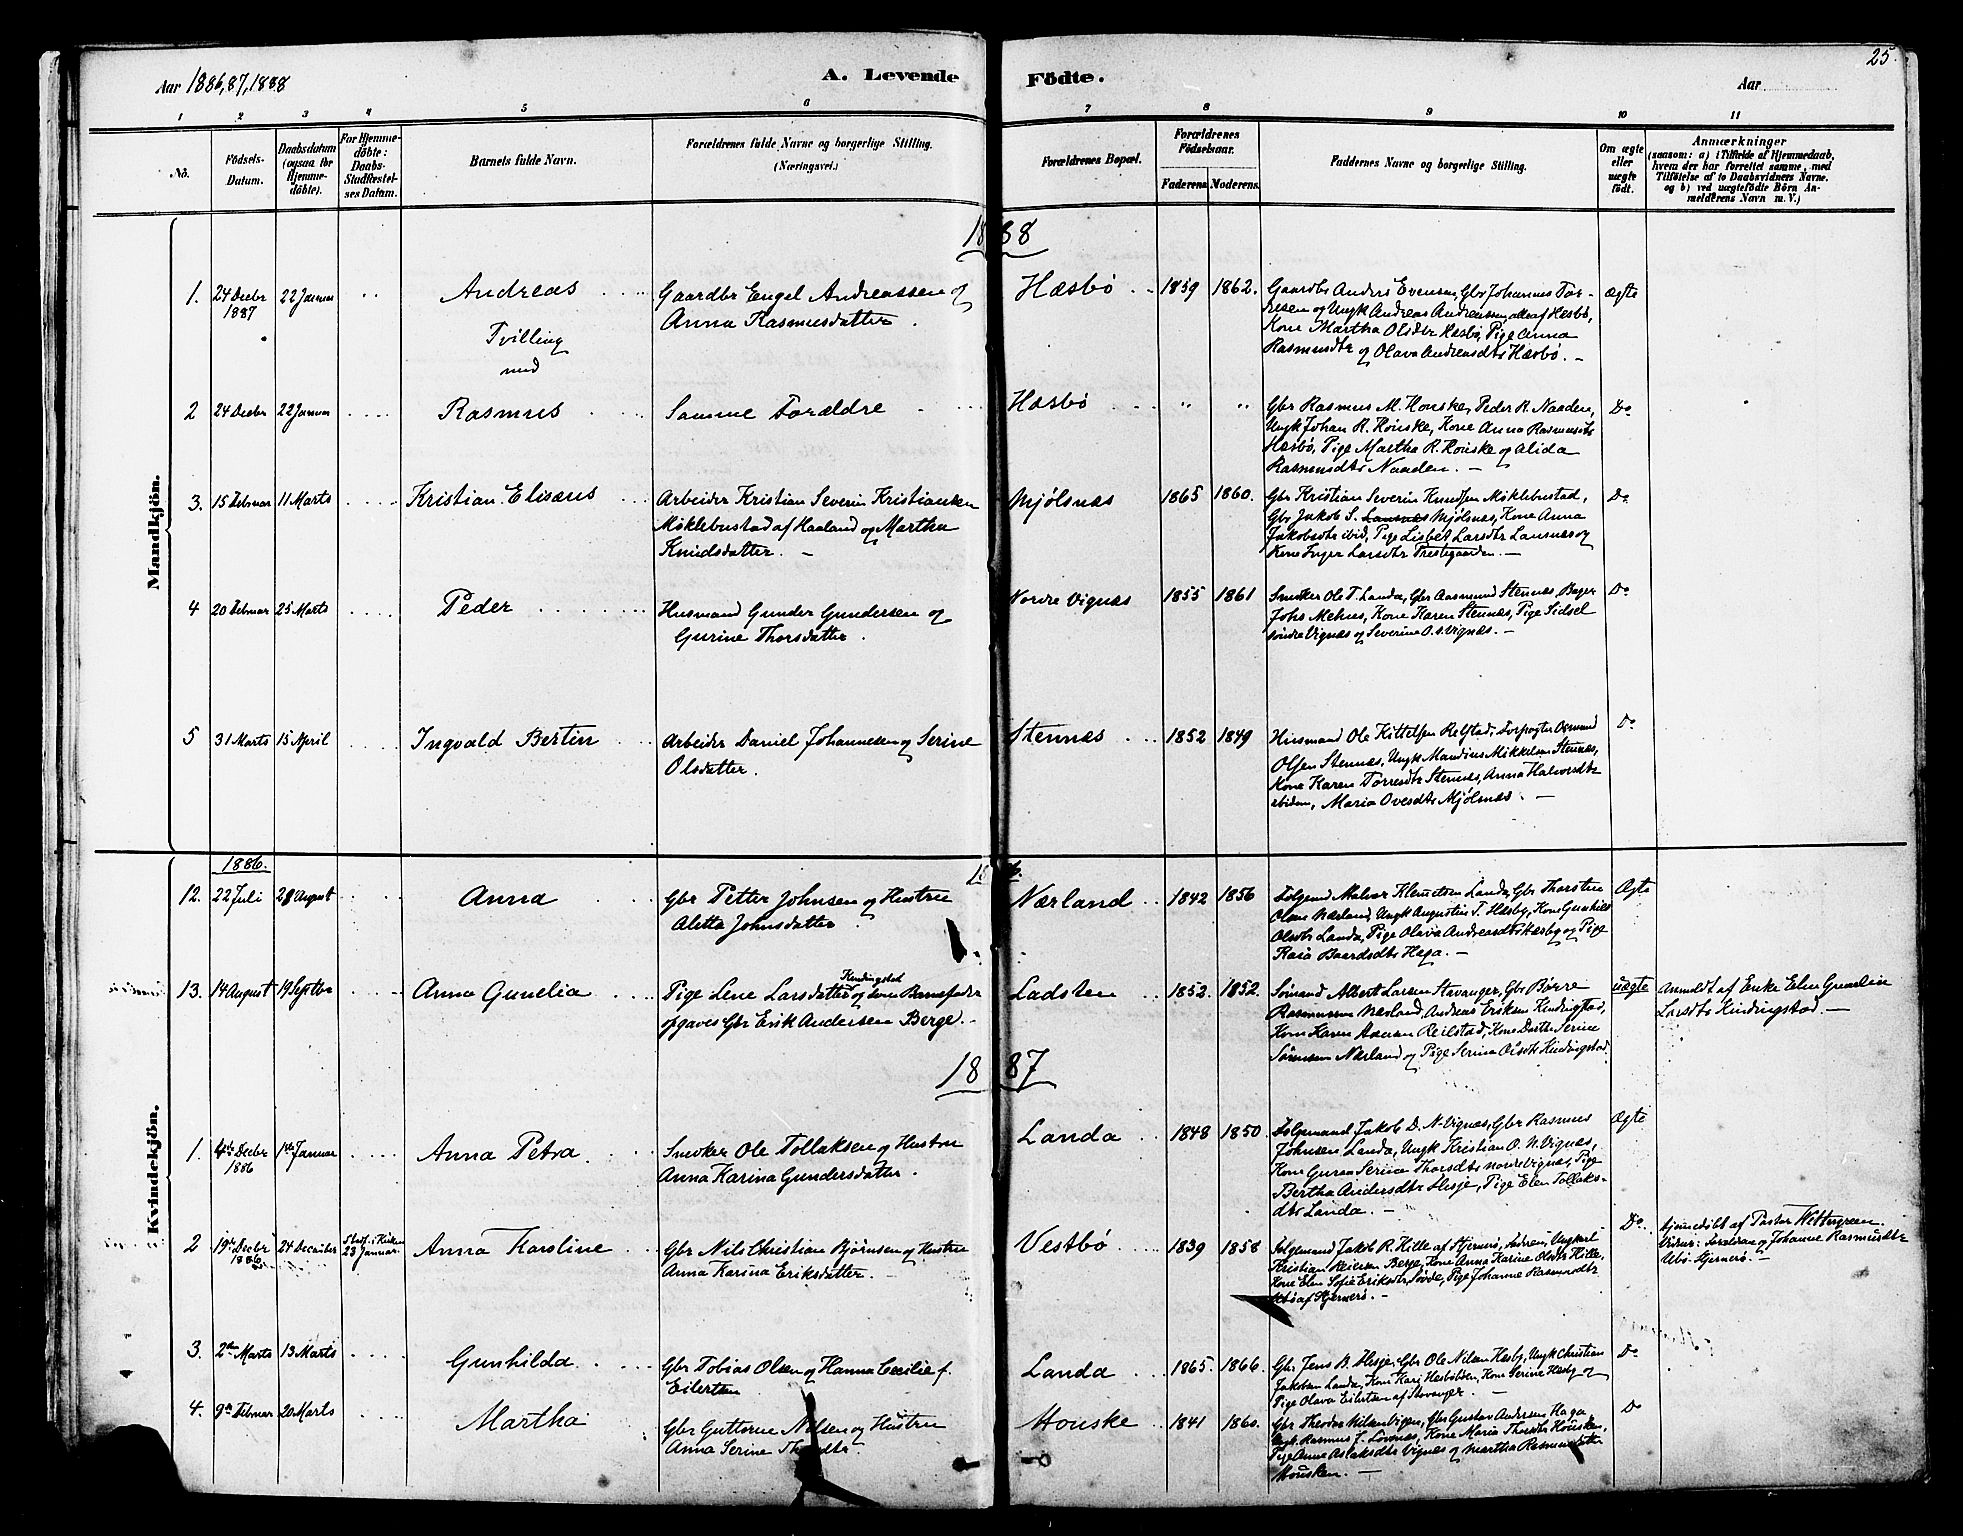 25.
Aar 1886,87,1888
A. Levende Födte.
Aar
1 2 3 4 5 6 7 8 9 10 11
No.
Födsels-
Datum.
Daabsdatum
(ogsaa for
Hjemme-
döbte).
For Hjemme-
döbte:
Daabs-
Stadfæstel-
ses Datum.
Barnets fulde Navn.
Forældrenes fulde Navne og borgerlige Stilling.
(Næringsvei.)
Forældrenes Bopæl.
Forældrenes
Födselsaar.
Faderens. Moderens.
Faddernes Navne og borgerlige Stilling.
Om ægte
eller
uægte
födt.
Anmærkninger
(saasom: a) i Tilfælde af Hjemmedaab,
hvem der har forrettet samme, med
Tilföielse af to Daabsvidners Navne.
og b) ved uægtefödte Börn An-
melderens Navn m. V.)
Mandkjön.
1888
1. 24 Decbr 22 Januar Andreas Gaardbr Engel Andreassen og Hæsbø 1859 1862. Gaardbr Anders Evensen, Gbr Johannes Tor- ægte
1887 Anna Rasmusdatter. resen og Ungk Andreas Andreassen, alle af Hæsbø,
Tvilling Kone Martha Olsdtr Hæsbø, Pige Anna
med Rasmusdtr og Olava Andreasdtr Hæsbø. —
2 24 Decbr 22 Januar Rasmus Samme Forældre Hæsbø " " Gbr Rasmus M. Houske, Peder R. Naaden, Do
Ungk Johan R. Houske, Kone Anna Rasmusdtr
Hæsbø, Pige Martha R. Houske og Alida
Rasmusdtr Naaden. —
3. 15 Februar 11 Marts Kristian Elisæus Arbeider Kristian Severin Kristiansen Mjølsnæs 1865 1860. Gbr Kristian Severin Knudsen Miklebustad, Do
Miklebustad af Haaland og Martha Gbr Jakob S. Mjølsnæs, Kone Anna
Knudsdatter. — Jakobsdtr ibid, Pige Lisbet Larsdtr Lansnæs og
Kone Inger Larsdtr Prestegaarden. —
4 20 Februar 25 Marts Peder Husmand Gunder Gundersen og Nordre Vignæs 1855 1861 Snedker Ole T. Landa, Gbr Aasmund Stennæs, Do
Gurine Thorsdatter. Johs Mehus, Kone Karen Stennæs, Pige Sidsel
søndre Vignæs og Severine O. s. Vignæs. —
5 31 Marts 15 April Ingvald Bertin Arbeider Daniel Johannesen og Serine Stennæs 1852 1849 Husmand Ole Kittelsen Reilstad, Osmund Do
Olsdatter. Olsen Stennæs, Ungk Mandius Mikkelsen Stennæs,
Kone Karen Torresdtr Stennæs, Anna Halvorsdtr
ibidem, Maria Ovesdtr Mjølsnæs. —
Kvindekjön.
1886. 1886.
12. 22 Juli 28 August Anna Gbr Petter Johnsen og Hustru Nærland 1842 1856 Halvor Klemetsen Landa, Gbr Thorsten Ægte
Aletta Johnsdatter. Olsen Nærland, Ungk Augustin T. Hæsby, Kone Gunhild
Olsdtr Landa, Pige Olava Andreasdtr Hæsby og Pige
Baardsdtr Haga. —
13. 14 August 19 Septbr Anna Gunelia Pige Lene Larsdatter Kindingstad og som Barnefader Ladsten 1852. 1852. Sømand Albert Larsen Stavanger, Gbr Børre uægte Anmeldt af Enke Elen
opgaves Gbr Erik Andersen Berge. Rasmussen Nærland, Andreas Eriksen Kindingstad, Larsdtr Kindingstad. —
Kone Karen Reilstad, Kone Dorthe Serine
Sørensen Nærland og Pige Serina Olsdtr Kindingstad.
1887
1. 4de Decbr 1ste Januar Anna Petra Snedker Ole Tollaksen og Hustru Landa 1848 1850 Jakob D. N. Vignæs, Gbr Rasmus Ægte
1886 Anna Karina Gundersdatter. Johnsen Landa, Ungk Kristian O. N. Vignæs,
Kone Guren Serine Thorsdtr nordre Vignæs, Pige
Bertha Andersdtr Hesje, Pige Elen Tollaks-
dtr Landa. —
2 19de Decbr 24 December Stadf. i Kirken Anna Karoline Gbr Nils Christian Bjørnsen og Hustru Vestbø 1839 1858 Jakob R. Hille af Hjernerø, Ungkarl Do. Hjemmedøbt af Pastor Wettergreen.
1886 23 Januar. Anna Karina Eriksdatter. Kristian Berge, Kone Anna Karine Olsdtr Hille, Johanne Rasmusdtr
Kone Elen Sofie Eriksdtr, Pige Johanne Rasmusdtr Ubø Hjernerø. —
Ubø af Hjernerø. —
3. 2den Marts 13 Marts Gunhilda Gbr Tobias Olsen og Hanna Cecilie f. Landa 1865. 1866. Gbr Jens B. Hesje, Gbr Ole Nilsen Hæsby, Ungk Christian Do
Eilertsen Jakobsen Landa, Kone Kari, Kone Serine Hæsby og
Pige Olava Eilertsen af Stavanger. —
4. 9de Februar 20 Marts Martha Gbr Guttorm Nilsen og Hustru Houske 1841 1860. Gbr Theodor Nilsen Vigen, Gbr Gustav Andersen Haga Do
Anna Serine Thorsdtr Ungk. Rasmus T. Lovnæs, Kone Maria Thorsdtr Housken,
Pige Anne Aslaksdtr Vignæs og Martha Rasmusdatter
Housken. —